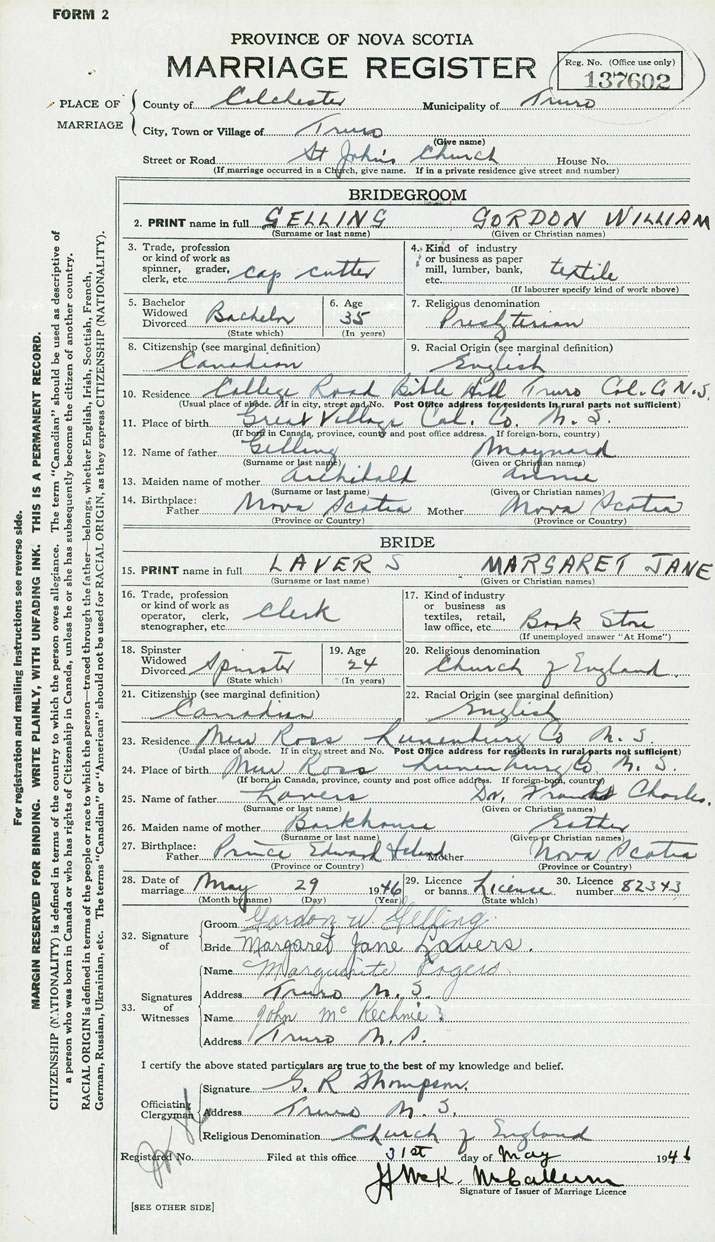 FORM 2
PROVINCE OF NOVA SCOTIA
MARRIAGE REGISTER
Reg. No. (Office use only)
137602
PLACE OF MARRIAGE
County of Colchester Municipality of Truro
City, Town or Village of Truro
(Give name)
Street or Road St John's Church House No.
(If marriage occurred in a Church, give name. If in a private residence give street and number)
BRIDEGROOM
2. PRINT name in full GELLING GORDON WILLIAM
(Surname or last name) (Given or Christian names)
3. Trade, profession or kind of work as spinner, grader, clerk, etc. cap cutter
4. Kind of industry or business as paper mill, lumber, bank, etc. textile
(If labourer specify kind of work above)
5. Bachelor Widowed Divorced Bachelor (State which)
6. Age 35 (In years)
7. Religious denomination Presbyterian
8. Citizenship (see marginal definition) Canadian
9. Racial Origin (see marginal definition) English
10. Residence College Road Bible Hill Truro Col. Co N.S.
(Usual place of abode. If in city, street and No. Post Office address for residents in rural parts not sufficient)
11. Place of birth Great Village Col. Co. N. S.
(If born in Canada, province, county and post office address. If foreign-born, country)
12. Name of father Gelling Maynard
(Surname or last name) (Given or Christian names)
13. Maiden name of mother Archibald Annie
(Surname or last name) (Given or Christian names)
14. Birthplace: Father Nova Scotia Mother Nova Scotia
(Province or Country) (Province or Country)
BRIDE
15. PRINT name in full LAVERS MARGARET JANE
(Surname or last name) (Given or Christian names)
16. Trade, profession or kind of work as operator, clerk, stenographer, etc. Clerk
17. Kind of industry or business as textiles, retail, law office, etc. Book Store
(If unemployed answer "At Home")
18. Spinster Widowed Divorced Spinster (State which)
19. Age 24 (In years)
20. Religious denomination Church of England.
21. Citizenship (see marginal definition) Canadian
22. Racial Origin (see marginal definition) English
23. Residence New Ross Lunenburg Co N. S.
(Usual place of abode. If in city, street and No. Post Office address for residents in rural parts not sufficient)
24. Place of birth New Ross Lunenburg Co N. S.
(If born in Canada, province, county and post office address. If foreign-born, country)
25. Name of father Lavers Dr. Charles.
(Surname or last name) (Given or Christian names)
26. Maiden name of mother Barkhouse Esther
(Surname or last name) (Given or Christian names)
27. Birthplace: Father Prince Edward Island Mother Nova Scotia
(Province or Country) (Province or Country)
28. Date of marriage May 29 1946
(Month by name) (Day) (Year)
29. Licence or banns License (State which)
30. Licence number 82343
32. Signature of
Groom Gordon W Gelling
Bride Margaret Jane Lavers.
33. Signatures of Witnesses
Name Marguerite Rogers.
Address Truro N. S.
Name John McKechnie
Address Truro N. S.
I certify the above stated particulars are true to the best of my knowledge and belief.
Officiating Clergyman
Signature G. R Thompson.
Address Truro N. S.
Religious Denomination Church of England
Registered No. Filed at this office 31st day of May 1946
McCallum
Signature of Issuer of Marriage Licence
[SEE OTHER SIDE]
For registration and mailing instructions see reverse side.
MARGIN RESERVED FOR BINDING. WRITE PLAINLY, WITH UNFADING INK. THIS IS A PERMANENT RECORD.
CITIZENSHIP (NATIONALITY) is defined in terms of the country to which the person owes allegiance. The term "Canadian" should be used as descriptive of
a person who was born in Canada or who has rights of Citizenship in Canada, unless he or she has subsequently become the citizen of another country.
RACIAL ORIGIN is defined in terms of the people or race to which the person—traced through the father—belongs, whether English, Irish, Scottish, French,
German, Russian, Ukrainian, etc. The terms "Canadian" or "American" should not be used for RACIAL ORIGIN, as they express CITIZENSHIP (NATIONALITY).